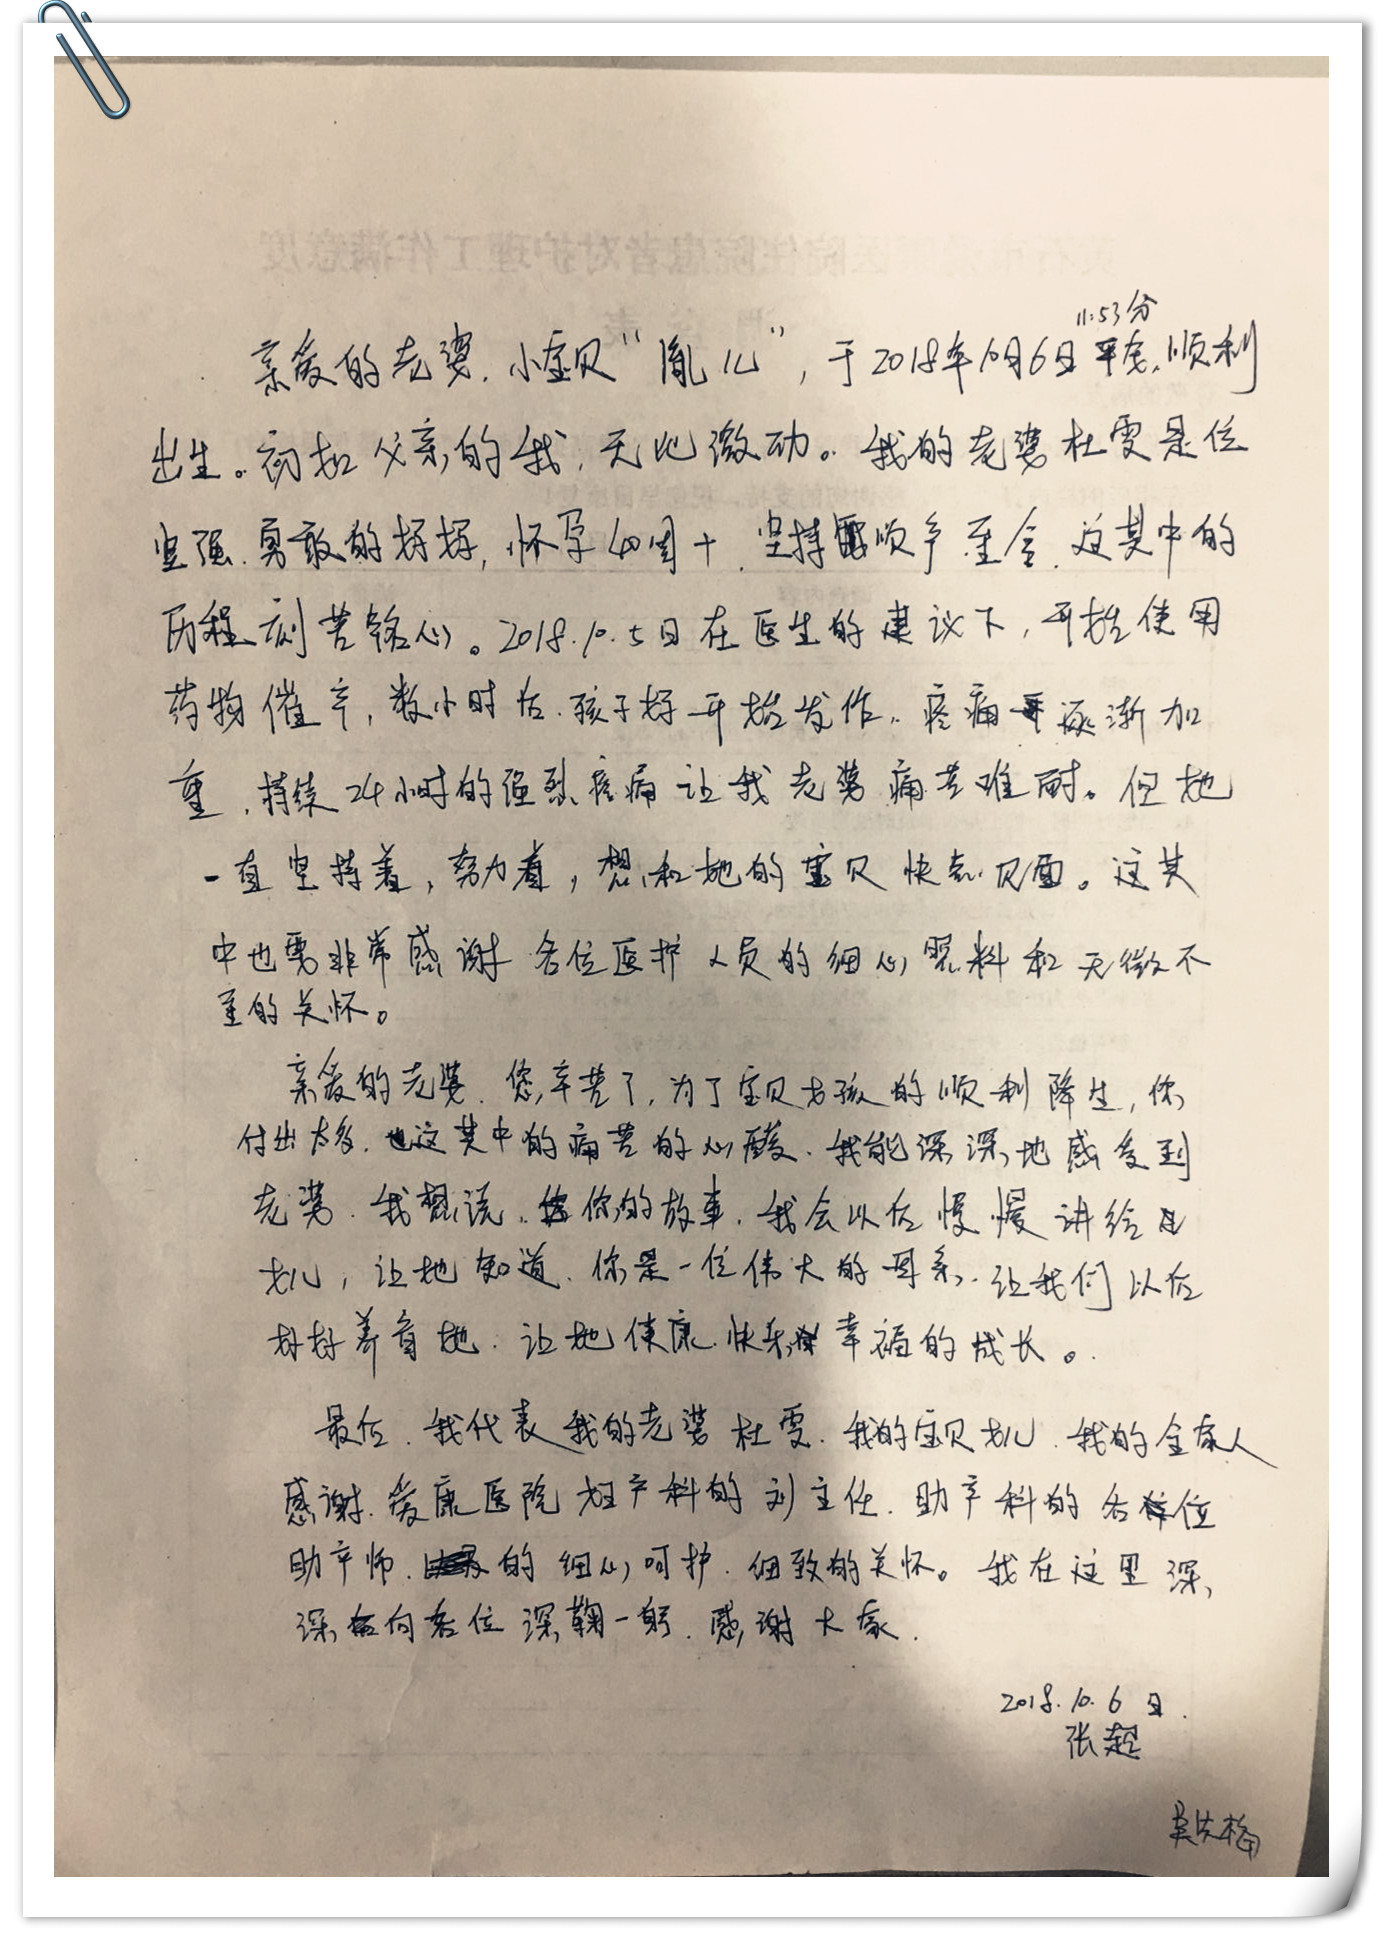 11:53分
亲爱的老婆,小宝贝“胤儿”,于2018年10月6日 顺利
出生。初为父亲的我,无比激动。我的老婆杜雯是位
坚强、勇敢的妈妈,怀孕40周+,坚持 顺产至今,这其中的
历程刻苦铭心。2018.10.5日在医生的建议下,开始使用
药物催产,数小时后,孩子妈开始发作,疼痛 逐渐加
重,持续24小时的强烈疼痛让我老婆痛苦难耐。但她
一直坚持着,努力着,想和她的宝贝快点见面。这其
中也要非常感谢各位医护人员的细心照料和无微不
至的关怀。
亲爱的老婆,您辛苦了,为了宝贝女孩的顺利降生,你
付出太多,这其中的痛苦的心酸,我能深深地感受到
老婆,我想说,你的故事,我会以后慢慢讲给
女儿,让她知道,你是一位伟大的母亲,让我们以后
好好养育她,让她健康、快乐 幸福的成长。
最后,我代表我的老婆杜雯,我的宝贝女儿,我的全家人
感谢,爱康医院妇产科的刘主任,助产科的各 位
助产师, 的细心呵护,细致的关怀。我在这里深
深 向各位深鞠一躬,感谢大家.
2018.10.6日.
张超